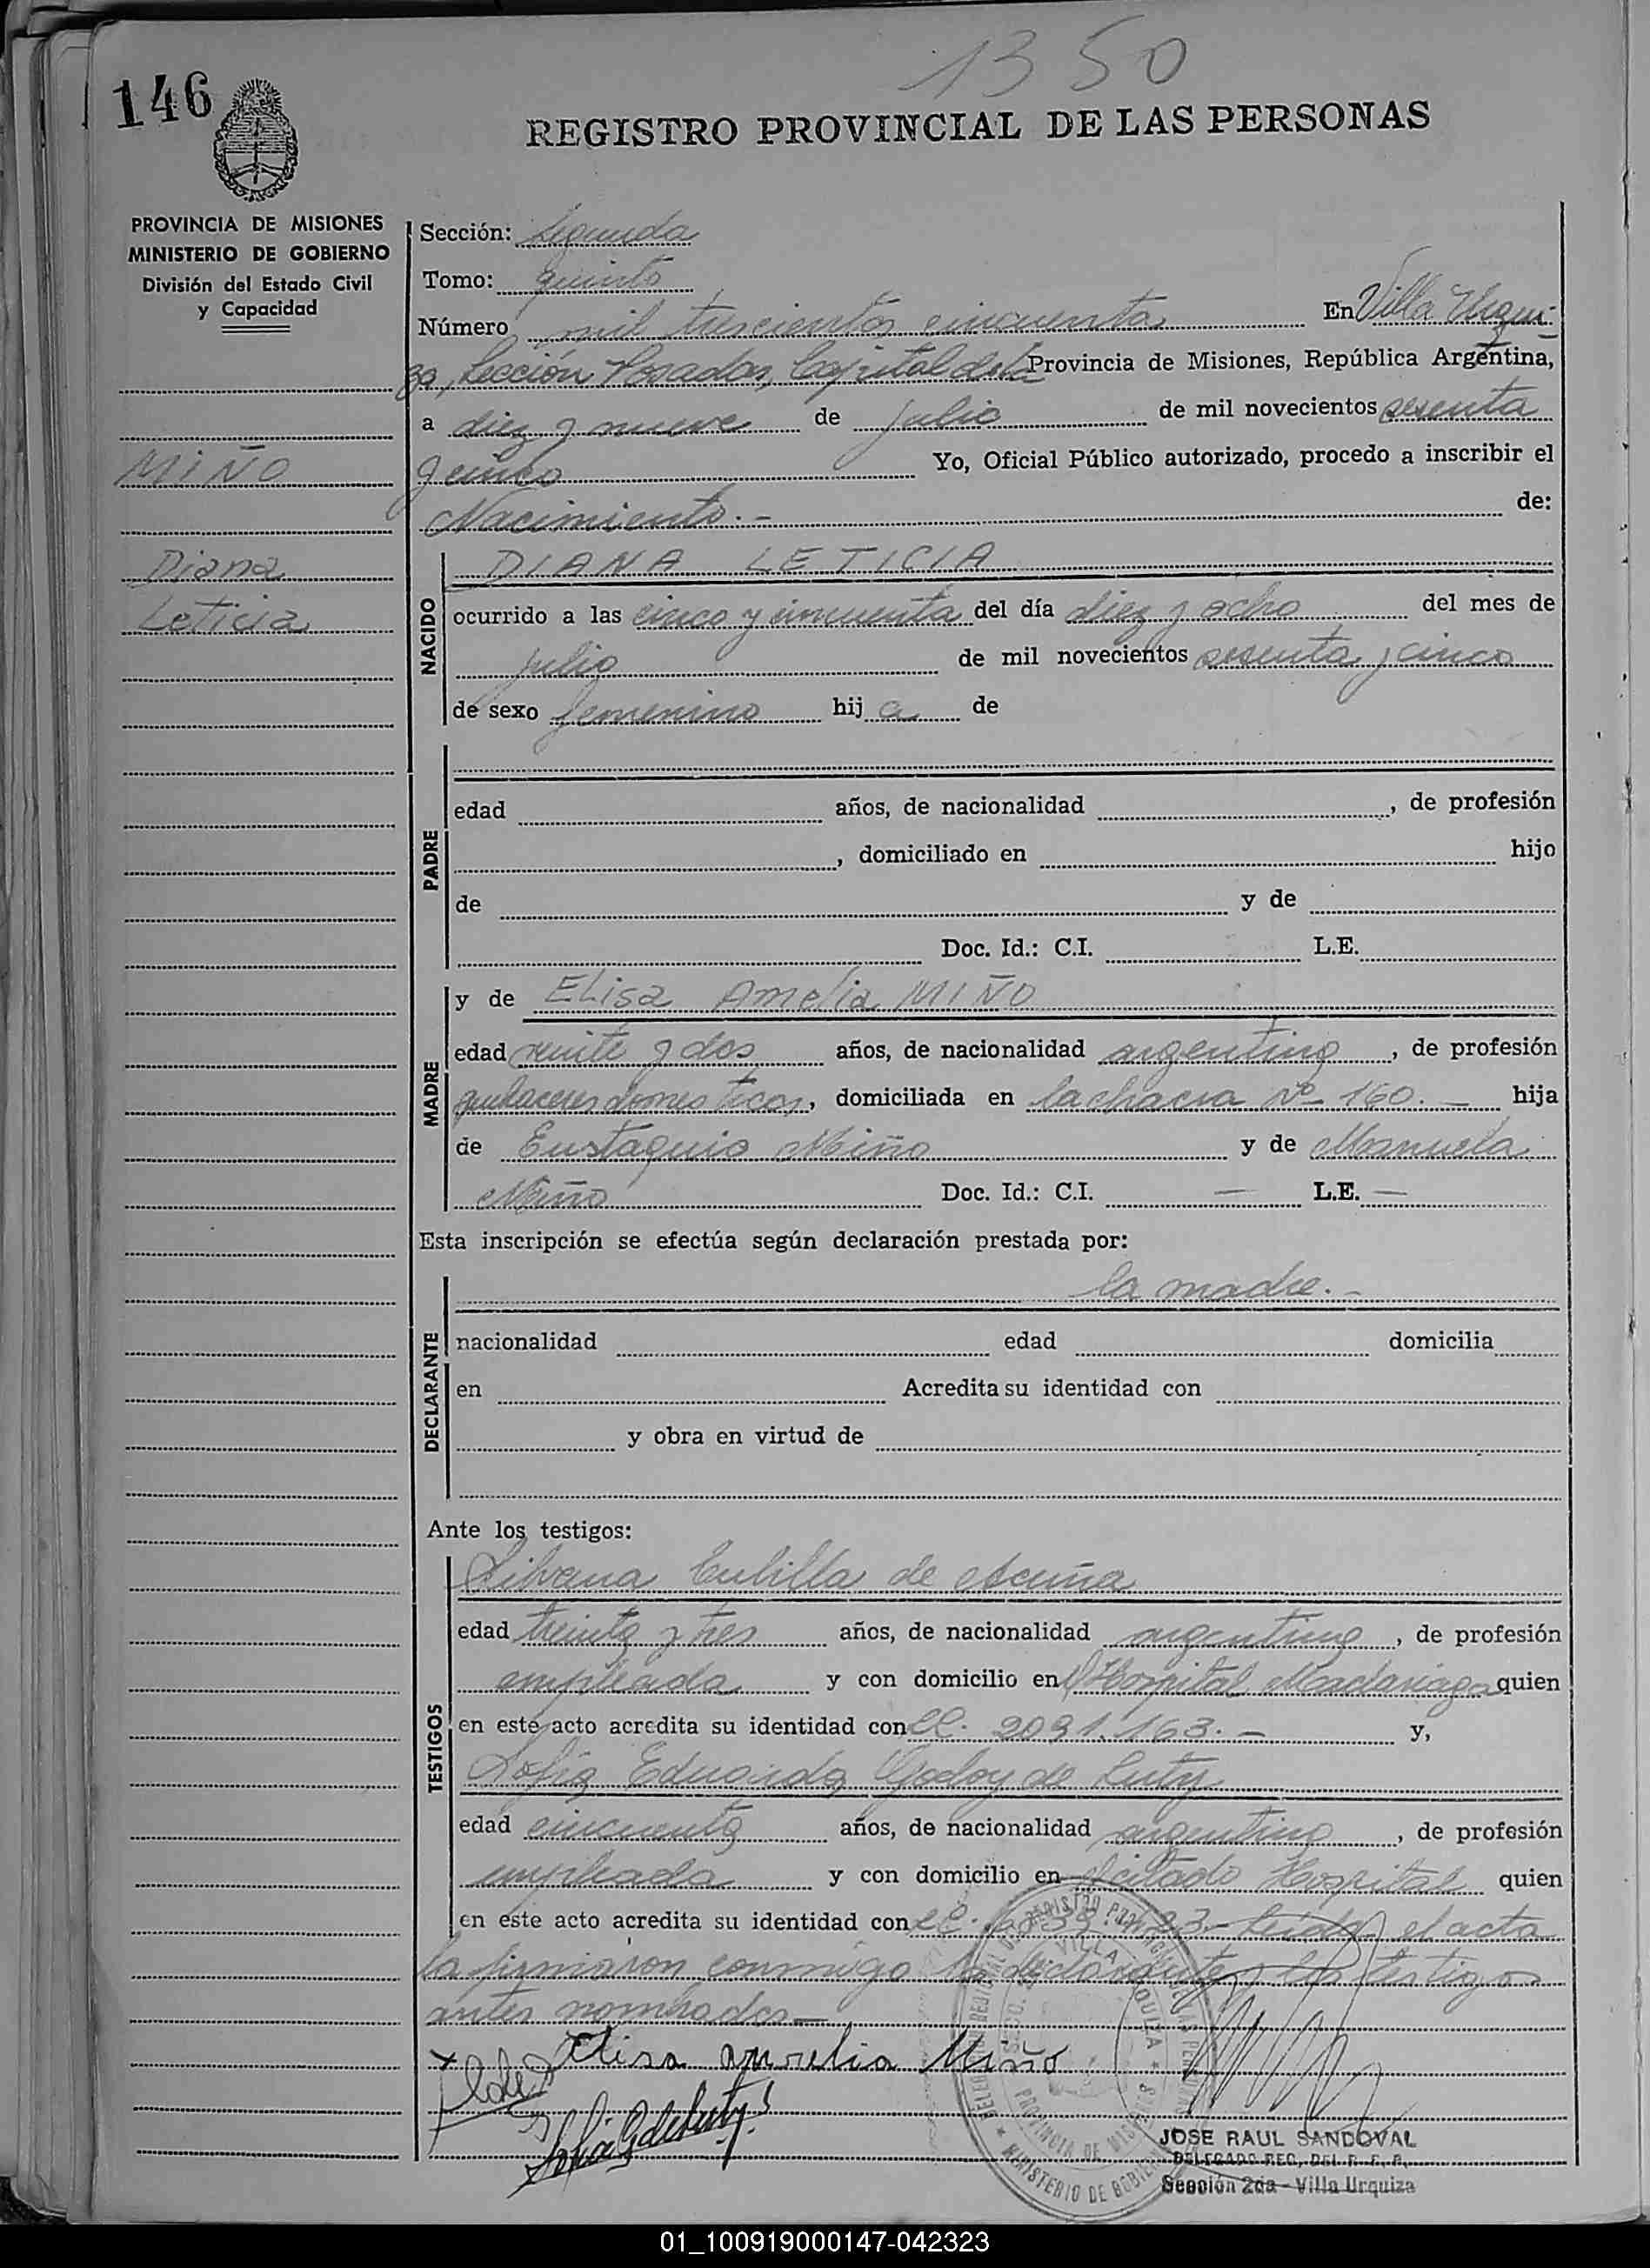 1350
146
REGISTRO PROVINCIAL DE LAS PERSONAS
PROVINCIA DE MISIONES
MINISTERIO DE GOBIERNO
División del Estado Civil
y Capacidad
MIÑO
Diana
Leticia
Sección: Segunda
Tomo: quinto
Número mil trescientos cincuenta En Villa Urqui-
za, Sección Posadas, Capital de la Provincia de Misiones, República Argentina,
a diez y nueve de julio de mil novecientos sesenta
y cinco Yo, Oficial Público autorizado, procedo a inscribir el
Nacimiento.- de:
NACIDO
DIANA LETICIA
ocurrido a las cinco y cincuenta del día diez y ocho del mes de
julio de mil novecientos sesenta y cinco
de sexo femenino hija de
PADRE
edad años, de nacionalidad , de profesión
, domiciliado en hijo
de y de
Doc. Id.: C.I. L.E.
MADRE
y de Elisa Amelia MIÑO
edad veinte y dos años, de nacionalidad argentina, de profesión
quehaceres domesticos, domiciliada en la chacra Nº 160.- hija
de Eustaquio Miño y de Manuela
Miño Doc. Id.: C.I. — L.E. —
Esta inscripción se efectúa según declaración prestada por:
DECLARANTE
la madre.-
nacionalidad edad domicilia
en Acredita su identidad con
y obra en virtud de
Ante los testigos:
TESTIGOS
Silvana Cubilla de Acuña
edad treinta y tres años, de nacionalidad argentina, de profesión
empleada y con domicilio en Hospital Madariaga quien
en este acto acredita su identidad con 2091.163.- y,
Sofia Eduarda Godoy de Luty
edad cincuenta años, de nacionalidad argentina, de profesión
empleada y con domicilio en citado Hospital quien
en este acto acredita su identidad con Leida el acta
la firmaron conmigo la declarante y los testigos
antes nombrados—
Elisa amelia Miño
JOSE RAUL SANDOVAL
DELEGADO REG. DEL R. P. P.
Sección 2da - Villa Urquiza
VILLA URQUIZA
PROVINCIA DE MISIONES
MINISTERIO DE GOBIERNO
01_100919000147-042323